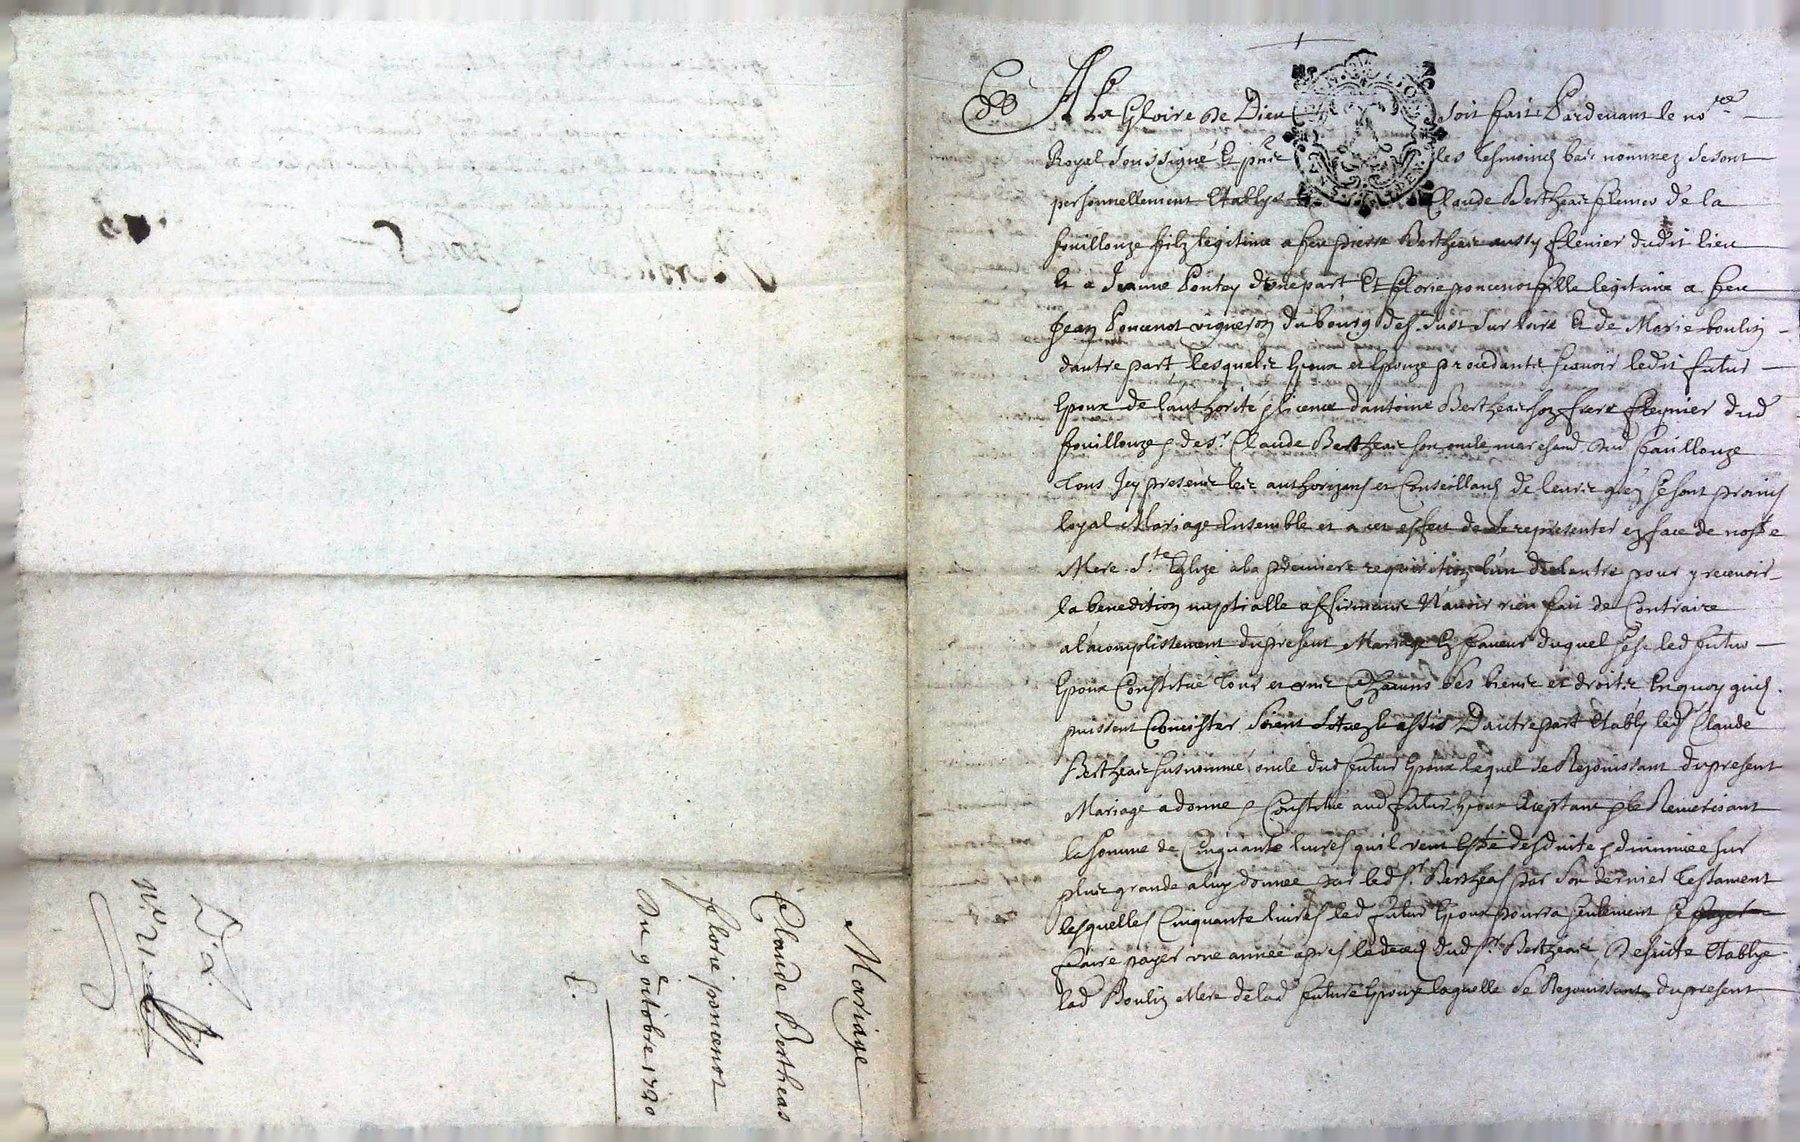 Mariage
Claude Bertheas
florie poncenot
Du 9 octobre 1720
A La Gloire de Dieu soit fait Pardevant le no.re
Royal soussigné Et pñts les tesmoins bas nommez se sont
personnellement Establys Claude Bertheas flenier de la
fouillouze filz legitime a feu pierre Bertheas aussy flenier dudit lieu
Et a Jeanne Pontey d'une part Et florie poncenot fille legitime a feu
Jean Poncenot vigneron du bourg de St Just sur loire Et de Marie boulin
dautre part lesquels Epoux et Epouze procedants scavoir ledit futur
Epoux de l'authorité licence dantoine Bertheas son frere flenier dud
fouillouze & de sr Claude Bertheas son oncle marchand dud fouillouze
Tous Icy presents les authorizans et Conseillans de leurs grez se sont promis
loyal Mariage Ensemble et a cet effect de se representer en face de nostre
Mere Ste Eglize a la premiere requisition l'un de lautre pour y recevoir
la benediction nuptialle affirmants N'avoir rien fait de Contraire
a lacomplissement du present Mariage En faveur duquel sest led futur
Epoux Constitué Tous et uns Chacuns ses biens et droits En quoy quils
puissent Consister soient situez & assis Dautre part Estably led sr Claude
Bertheas susnommé oncle dud futur Epoux lequel se Rejouissant du present
Mariage a donné & Constitué aud futur Epoux aceptant & le Remerciant
la somme de Cinquante livres quil veut Estre desduite & diminuée sur
plus grande a luy donnée par led sr Bertheas par son dernier Testament
lesquelles Cinquante livres led futur Epoux pourra seulement se
faire payer une année apres le deces dud sr Bertheas De suite Establye
lad Boulin Mere de lad future Epouze laquelle se Rejouissant du present